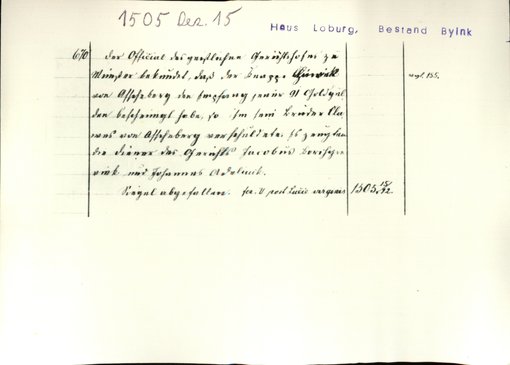 1505 Dez. 15
Haus Loburg, Bestand Byink
670 Der Official des geistlichen Gerichtshofes zu
Münster bekundet, daß der Knappe Hinrik
von Asscheberg den Empfang jener 91 Goldgul
den bescheinigt habe, so ihm sein Bruder Cla
wes von Asscheberg verschuldete. Es zeugten
die Diener des Gerichts Jacobus
und Johannes
Siegel abgefallen. fer. II post Lucie virginis 1505 15/12
vergl. 155.